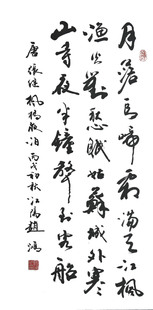 月落烏啼霜滿天江楓
漁火對愁眠姑蘇城外寒
山寺夜半鐘聲到客船
唐張继楓橋夜泊 丙戌初秋江陽趙